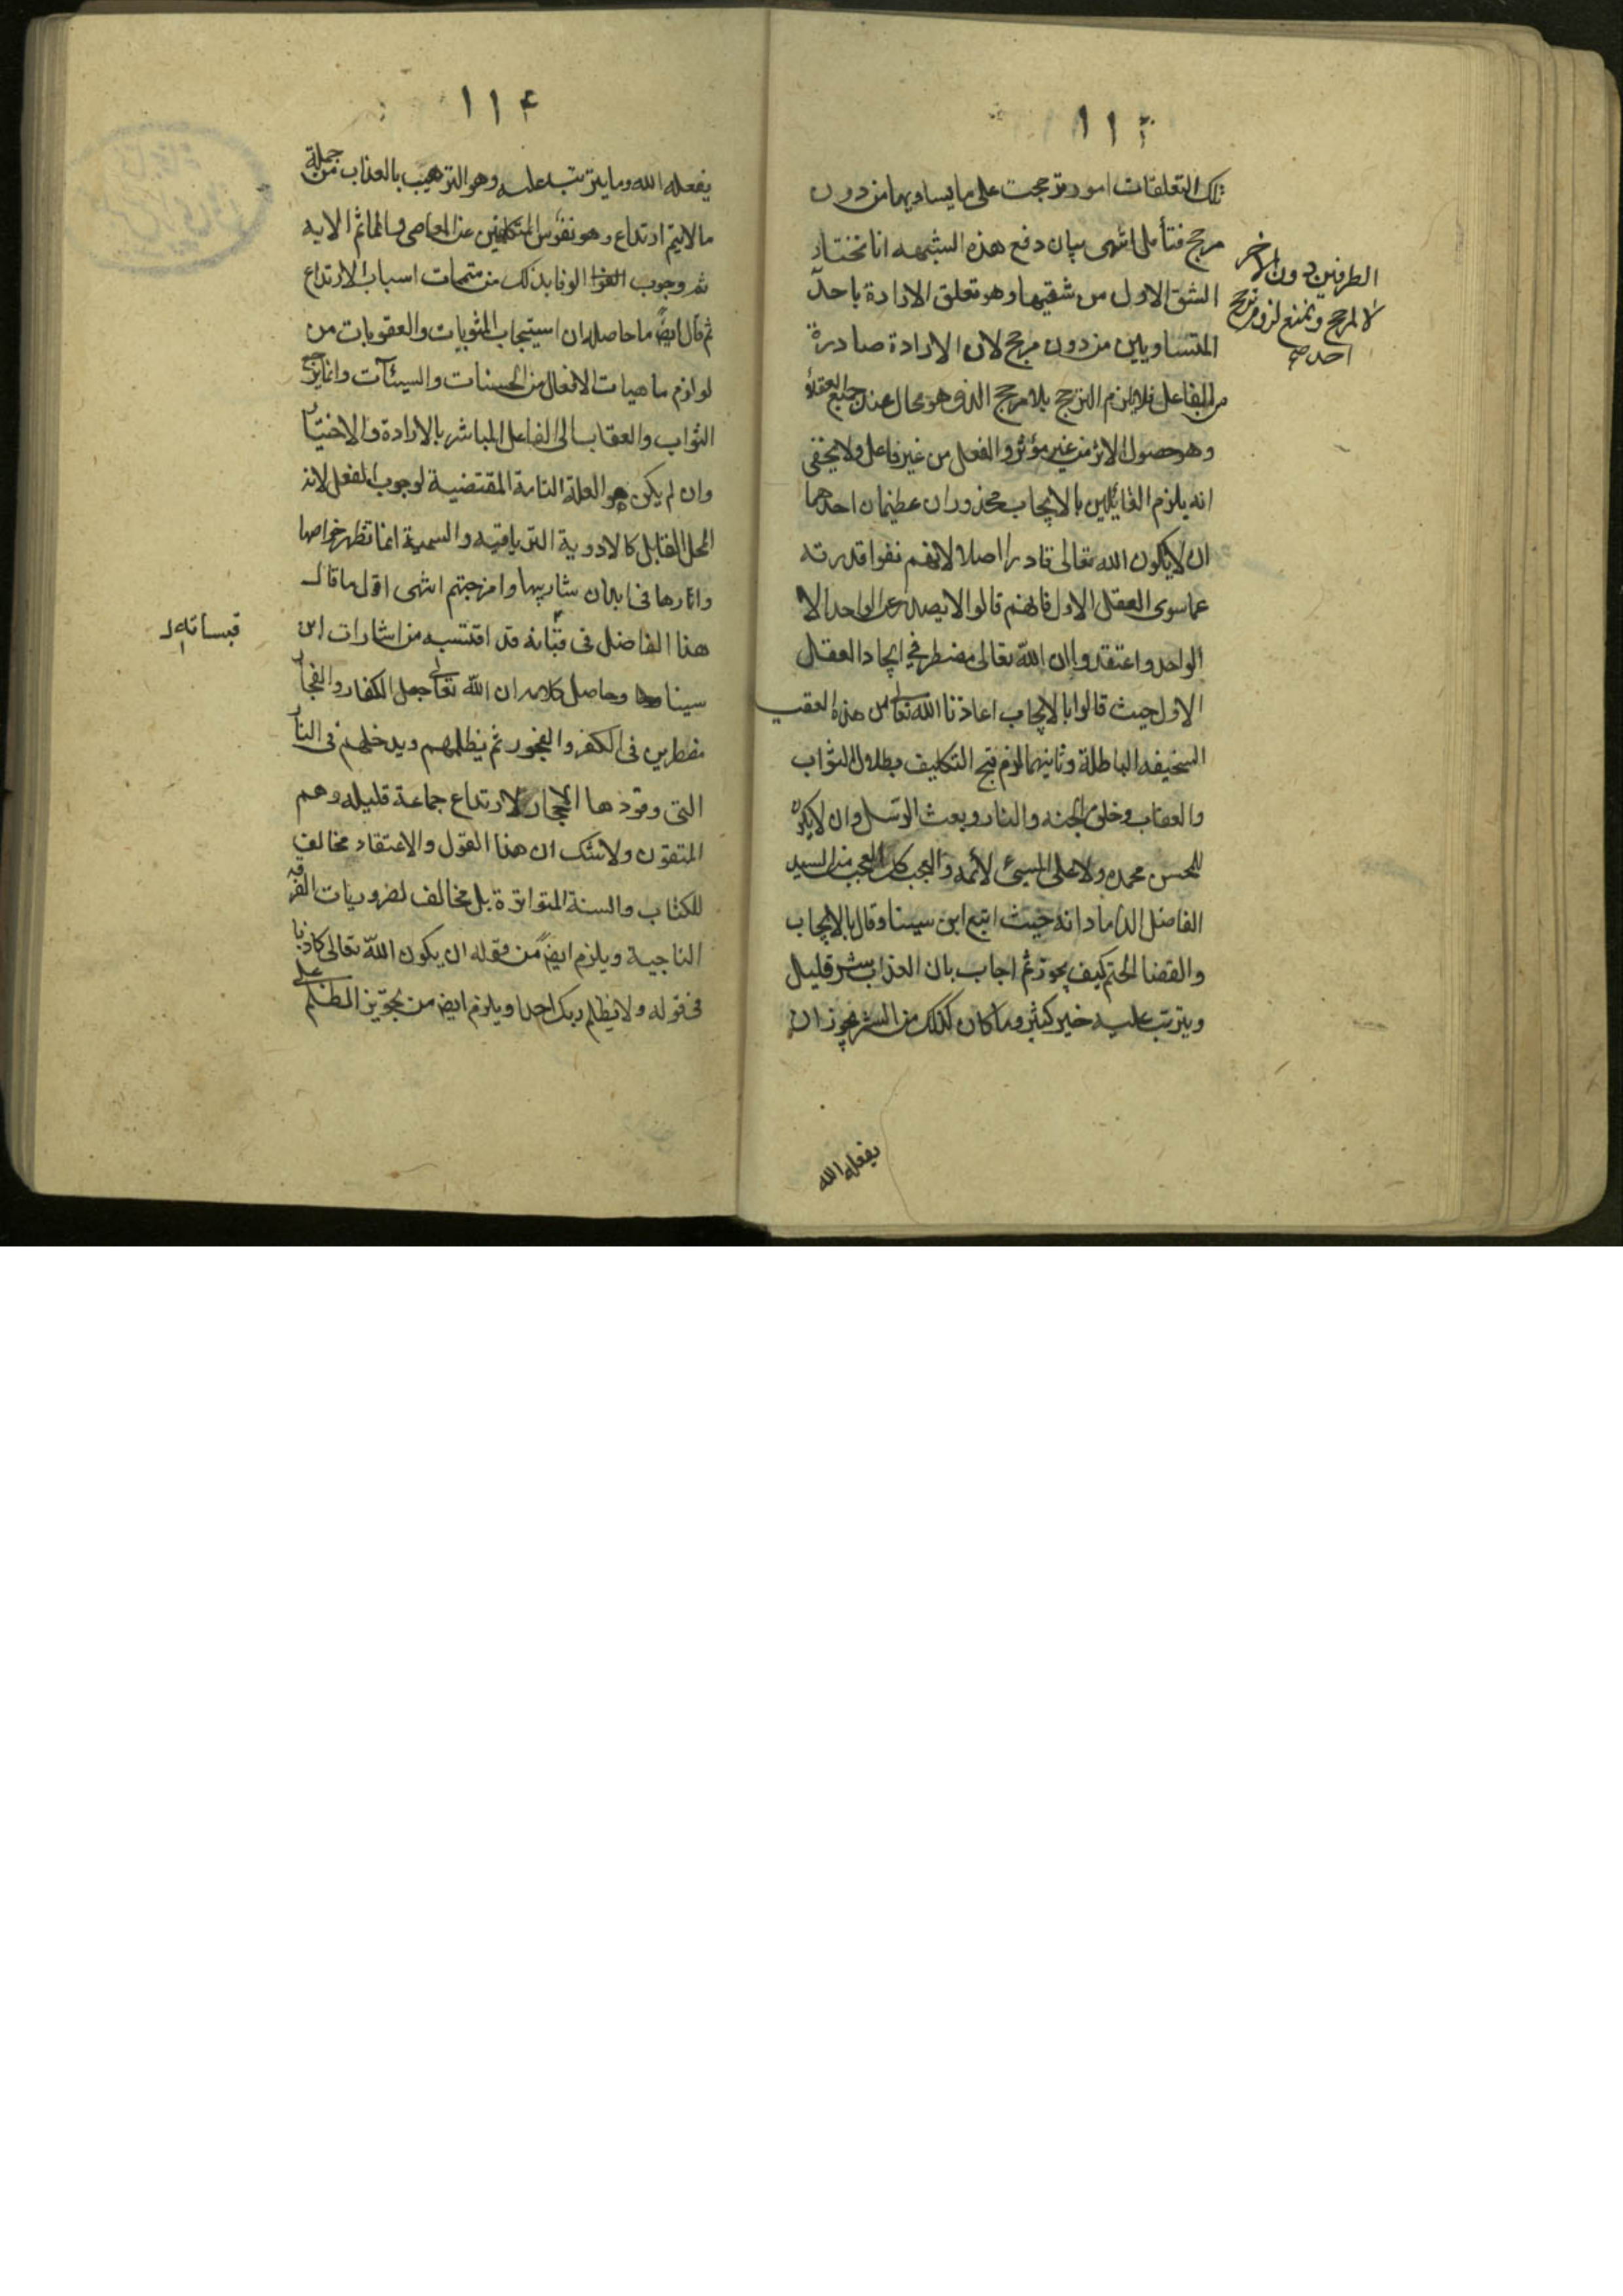 ١١٣
تلك التعلقات امور ترجحت على ما يساويها من دون
مرجح فتأمل انتهى بيان دفع هذه الشبهه انا نختار
الشق الاول من شقيها وهو تعلق الارادة باحد
الطرفين دون الاخر
لا لمرجح ونمنع لزوم ترجح
احد صح
المتساويين من دون مرجح لان الارادة صادرة
من الفاعل فلا يلزم الترجح بلا مرجح الذى هو محال عند جميع العقلاء
وهو حصول الاثر من غير مؤثر والفعل من غير فاعل ولا يخفى
انه يلزم القائلين بالايجاب محذوران عظيمان احدهما
ان لا يكون الله تعالى قادرا اصلا لانهم نفوا قدرته
عما سوى العقل الاول فانهم قالوا لا يصدر عن الواحد الا
الواحد واعتقدوا ان الله تعالى مضطر فى ايجاد العقل
الاول حيث قالوا بالايجاب اعاذنا الله تعالى من هذه العقيـ
السخيفه الباطلة وثانيهما لزوم قبح التكليف وبطلان الثواب
والعقاب وخلق الجنه والنار وبعث الرسل وان لا يكون
للمحسن محمده ولا على المسئ لأئمه والعجب كل العجب من السيد
الفاضل الداماد انه حيث اتبع ابن سينا وقال بالايجاب
والقضا الحتم كيف يجوز ثم اجاب بان العذاب شر قليل
ويترتب عليه خير كثير وما كان كذلك من الشر يجوز ان
يفعله الله
١١٤
يفعله الله وما يترتب عليه وهو الترهيب بالعذاب من جملة
ما لا يتم ارتداع وهو نفوس المتكلفين عن المعاصى والمآثم الا به
ثم وجوب الوفا بذلك من متممات اسباب الارتداع
ثم قال ايضً ما حاصله ان استيجاب المثوبات والعقوبات من
لوازم ماهيات الافعال من الحسنات والسيئآت وانما
الثواب والعقاب الى الفاعل المباشر بالارادة والاختيار
وان لم يكن هو العلة التامة المقتضية لوجوب الفعل لانه
المحل القابل كالادوية الترياقيه والسمية انما تظهر خواصها
واثارها فى ابدان شاربيها وامزجتهم انتهى اقول ما قال
هذا الفاضل فى قد اقتبسه من اشارات ابن
قبساته
سينا وحاصل كلامه ان الله تعالى جعل الكفار والفجار
مضطرين فى الكفر والفجور ثم يظلمهم ويدخلهم فى النار
التى وقودها الحجار لارتداع جماعة قليله وهم
المتقون ولا شك ان هذا القول والاعتقاد مخالف
للكتاب والسنة المتواترة بل مخالف لضروريات الفرقه
الناجية ويلزم ايضً من قوله ان يكون الله تعالى كاذبا
فى قوله ولا يظلم ربك احدا ويلزم ايض من تجويز الظلم على